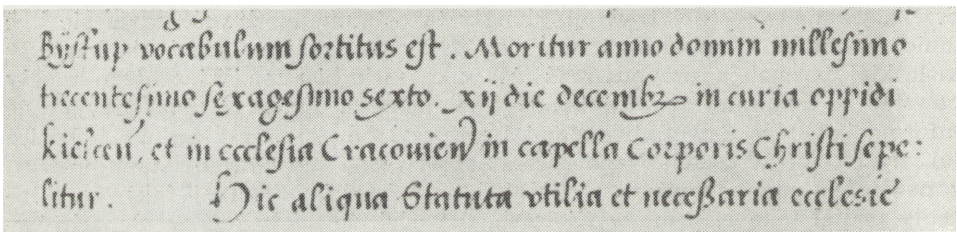 Bijstup vocabulum sortitus est. Moritur anno domini millesimo
trecentesimo sexagesimo sexto. xij die decembrꝫ in curia oppidi
kielceń, et in ecclesia Cracouień in capella Corporis Christi sepe:
litur. Hic aliqua Statuta vtilia et neceßaria ecclesie